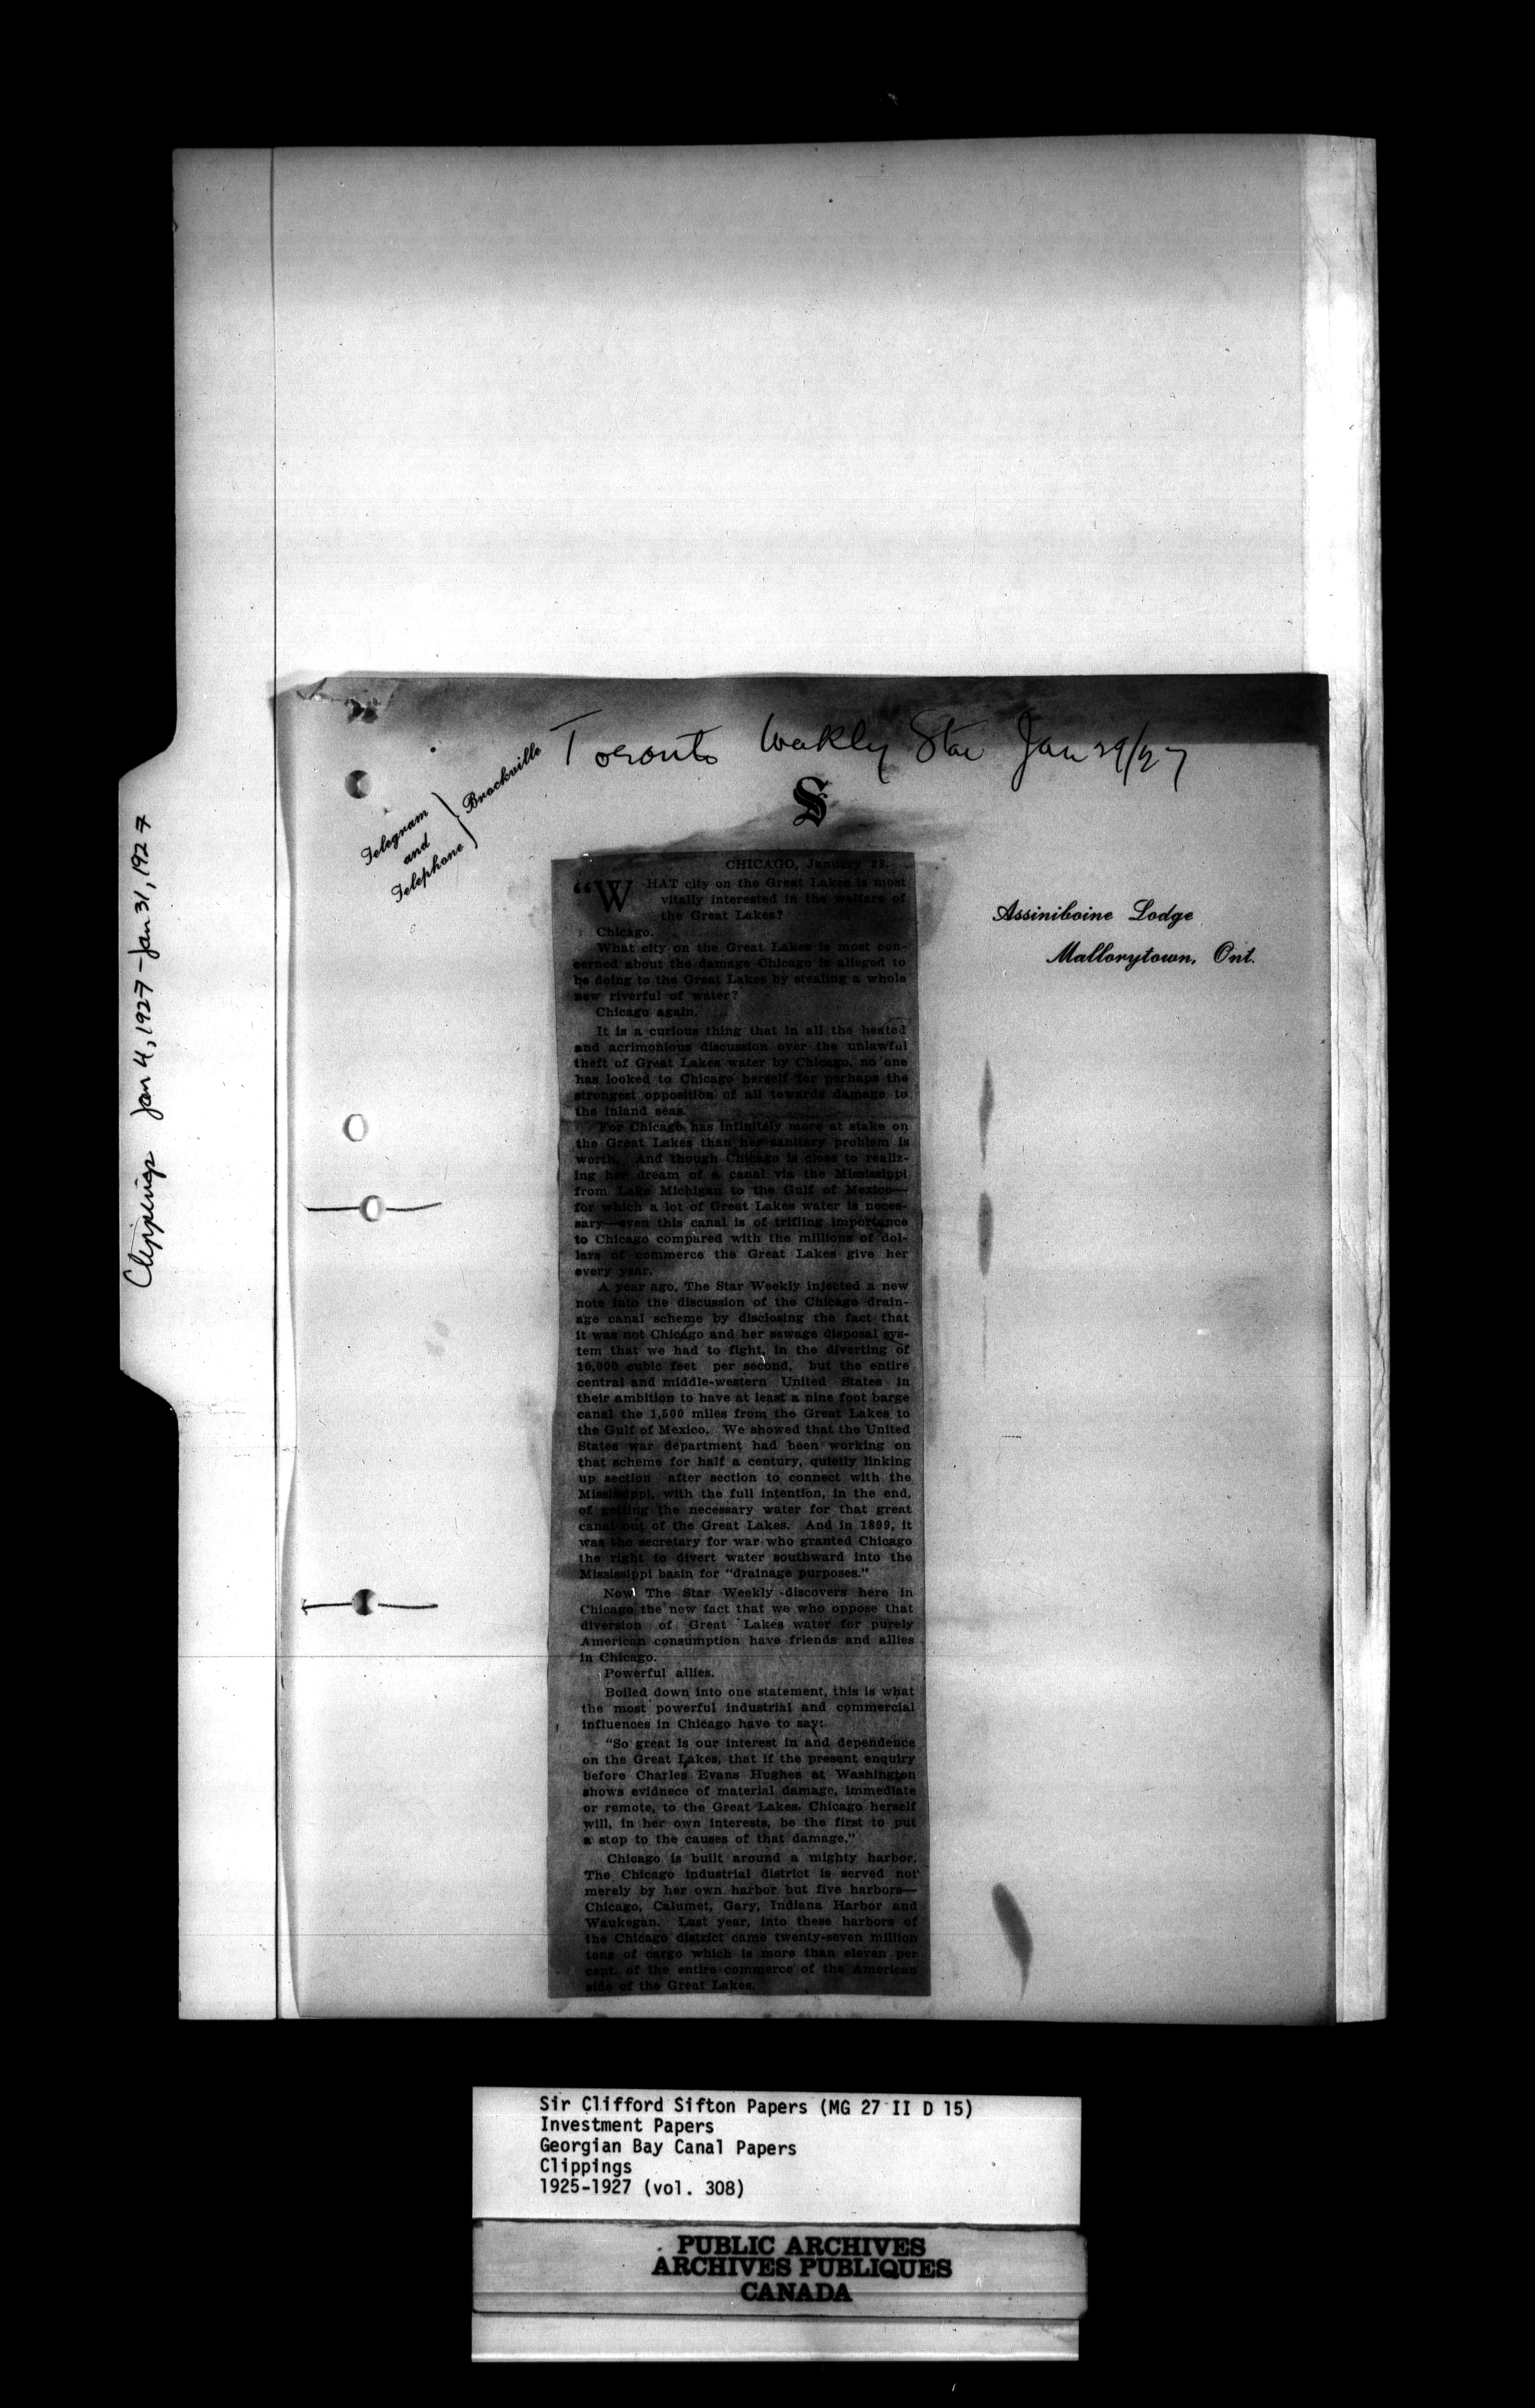 Clippings Jan 4, 1927 - Jan 31, 1927
Toronto Weekly Star Jan 29/27
Telegram
and
Telephone
Brockville
S
Assiniboine Lodge
Mallorytown, Ont.
CHICAGO, January 28.
"WHAT city on the Great Lakes is most
vitally interested in the welfare of
the Great Lakes?
Chicago.
What city on the Great Lakes is most con-
cerned about the damage Chicago is alleged to
be doing to the Great Lakes by stealing a whole
new riverful of water?
Chicago again.
It is a curious thing that in all the heated
and acrimonious discussion over the unlawful
theft of Great Lakes water by Chicago, no one
has looked to Chicago herself for perhaps the
strongest opposition of all towards damage to
the inland seas.
For Chicago has infinitely more at stake on
the Great Lakes than her sanitary problem is
worth. And though Chicago is close to realiz-
ing her dream of a canal via the Mississippi
from Lake Michigan to the Gulf of Mexico—
for which a lot of Great Lakes water is neces-
sary—even this canal is of trifling importance
to Chicago compared with the millions of dol-
lars of commerce the Great Lakes give her
every year.
A year ago, The Star Weekly injected a new
note into the discussion of the Chicago drain-
age canal scheme by disclosing the fact that
it was not Chicago and her sewage disposal sys-
tem that we had to fight, in the diverting of
10,000 cubic feet per second, but the entire
central and middle-western United States in
their ambition to have at least a nine foot barge
canal the 1,500 miles from the Great Lakes to
the Gulf of Mexico. We showed that the United
States war department had been working on
that scheme for half a century, quietly linking
up section after section to connect with the
Mississippi, with the full intention, in the end,
of getting the necessary water for that great
canal out of the Great Lakes. And in 1899, it
was the secretary for war who granted Chicago
the right to divert water southward into the
Mississippi basin for "drainage purposes."
Now The Star Weekly discovers here in
Chicago the new fact that we who oppose that
diversion of Great Lakes water for purely
American consumption have friends and allies
in Chicago.
Powerful allies.
Boiled down into one statement, this is what
the most powerful industrial and commercial
influences in Chicago have to say:
"So great is our interest in and dependence
on the Great Lakes, that if the present enquiry
before Charles Evans Hughes at Washington
shows evidnece of material damage, immediate
or remote, to the Great Lakes, Chicago herself
will, in her own interests, be the first to put
a stop to the causes of that damage."
Chicago is built around a mighty harbor.
The Chicago industrial district is served not
merely by her own harbor but five harbors—
Chicago, Calumet, Gary, Indiana Harbor and
Waukegan. Last year, into these harbors of
the Chicago district came twenty-seven million
tons of cargo which is more than eleven per
cent. of the entire commerce of the American
side of the Great Lakes.
Sir Clifford Sifton Papers (MG 27 II D 15)
Investment Papers
Georgian Bay Canal Papers
Clippings
1925-1927 (vol. 308)
PUBLIC ARCHIVES
ARCHIVES PUBLIQUES
CANADA